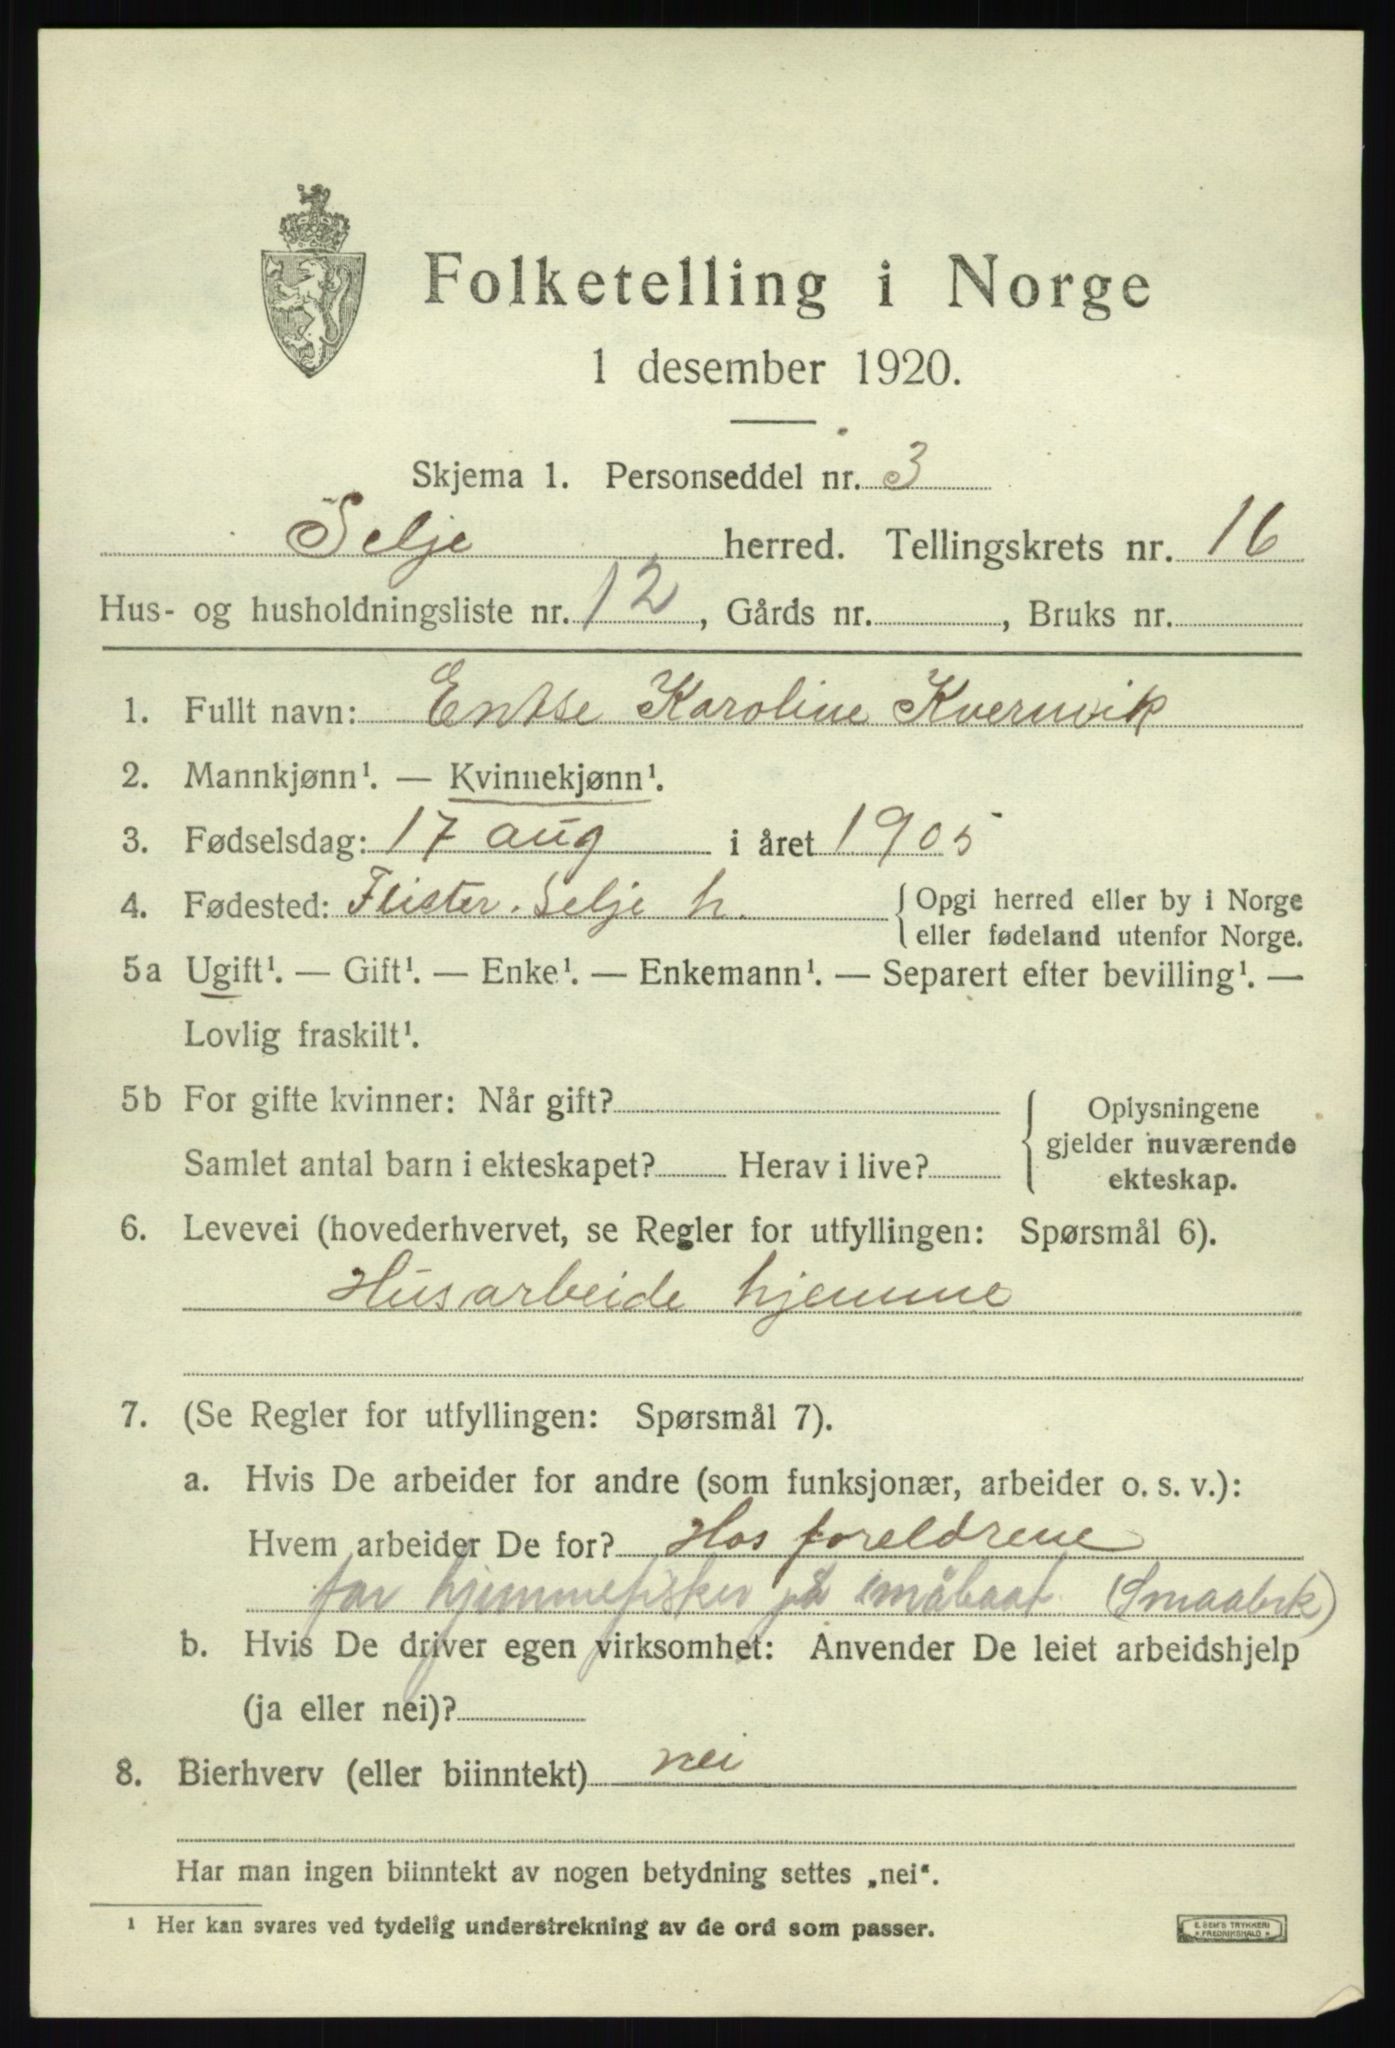 Folketelling i Norge
1 desember 1920.
Skjema 1. Personseddel nr. 3
Selje herred. Tellingskrets nr. 16
Hus- og husholdningsliste nr. 12, Gårds nr. , Bruks nr.
1. Fullt navn: Karoline Kvernvik
2. Mannkjønn¹. — Kvinnekjønn¹.
3. Fødselsdag: 17 aug i året 1905
4. Fødested: Flister. Selje h. { Opgi herred eller by i Norge
eller fødeland utenfor Norge.
5a Ugift¹. — Gift¹. — Enke¹. — Enkemann¹. — Separert efter bevilling¹. —
Lovlig fraskilt¹.
5b For gifte kvinner: Når gift?
Samlet antal barn i ekteskapet? Herav i live?
Oplysningene
gjelder nuværende
ekteskap.
6. Levevei (hovederhvervet, se Regler for utfyllingen: Spørsmål 6).
Husarbeide hjemme
7. (Se Regler for utfyllingen: Spørsmål 7).
a. Hvis De arbeider for andre (som funksjonær, arbeider o. s. v.):
Hvem arbeider De for? Hos foreldrene
far hjemmefisker på småbaat (Smaabrk)
b. Hvis De driver egen virksomhet: Anvender De leiet arbeidshjelp
(ja eller nei)?
8. Bierhverv (eller biinntekt) nei
Har man ingen biinntekt av nogen betydning settes „nei“.
¹ Her kan svares ved tydelig understrekning av de ord som passer.
E. SEM'S TRYKKERI
FREDRIKSHALD